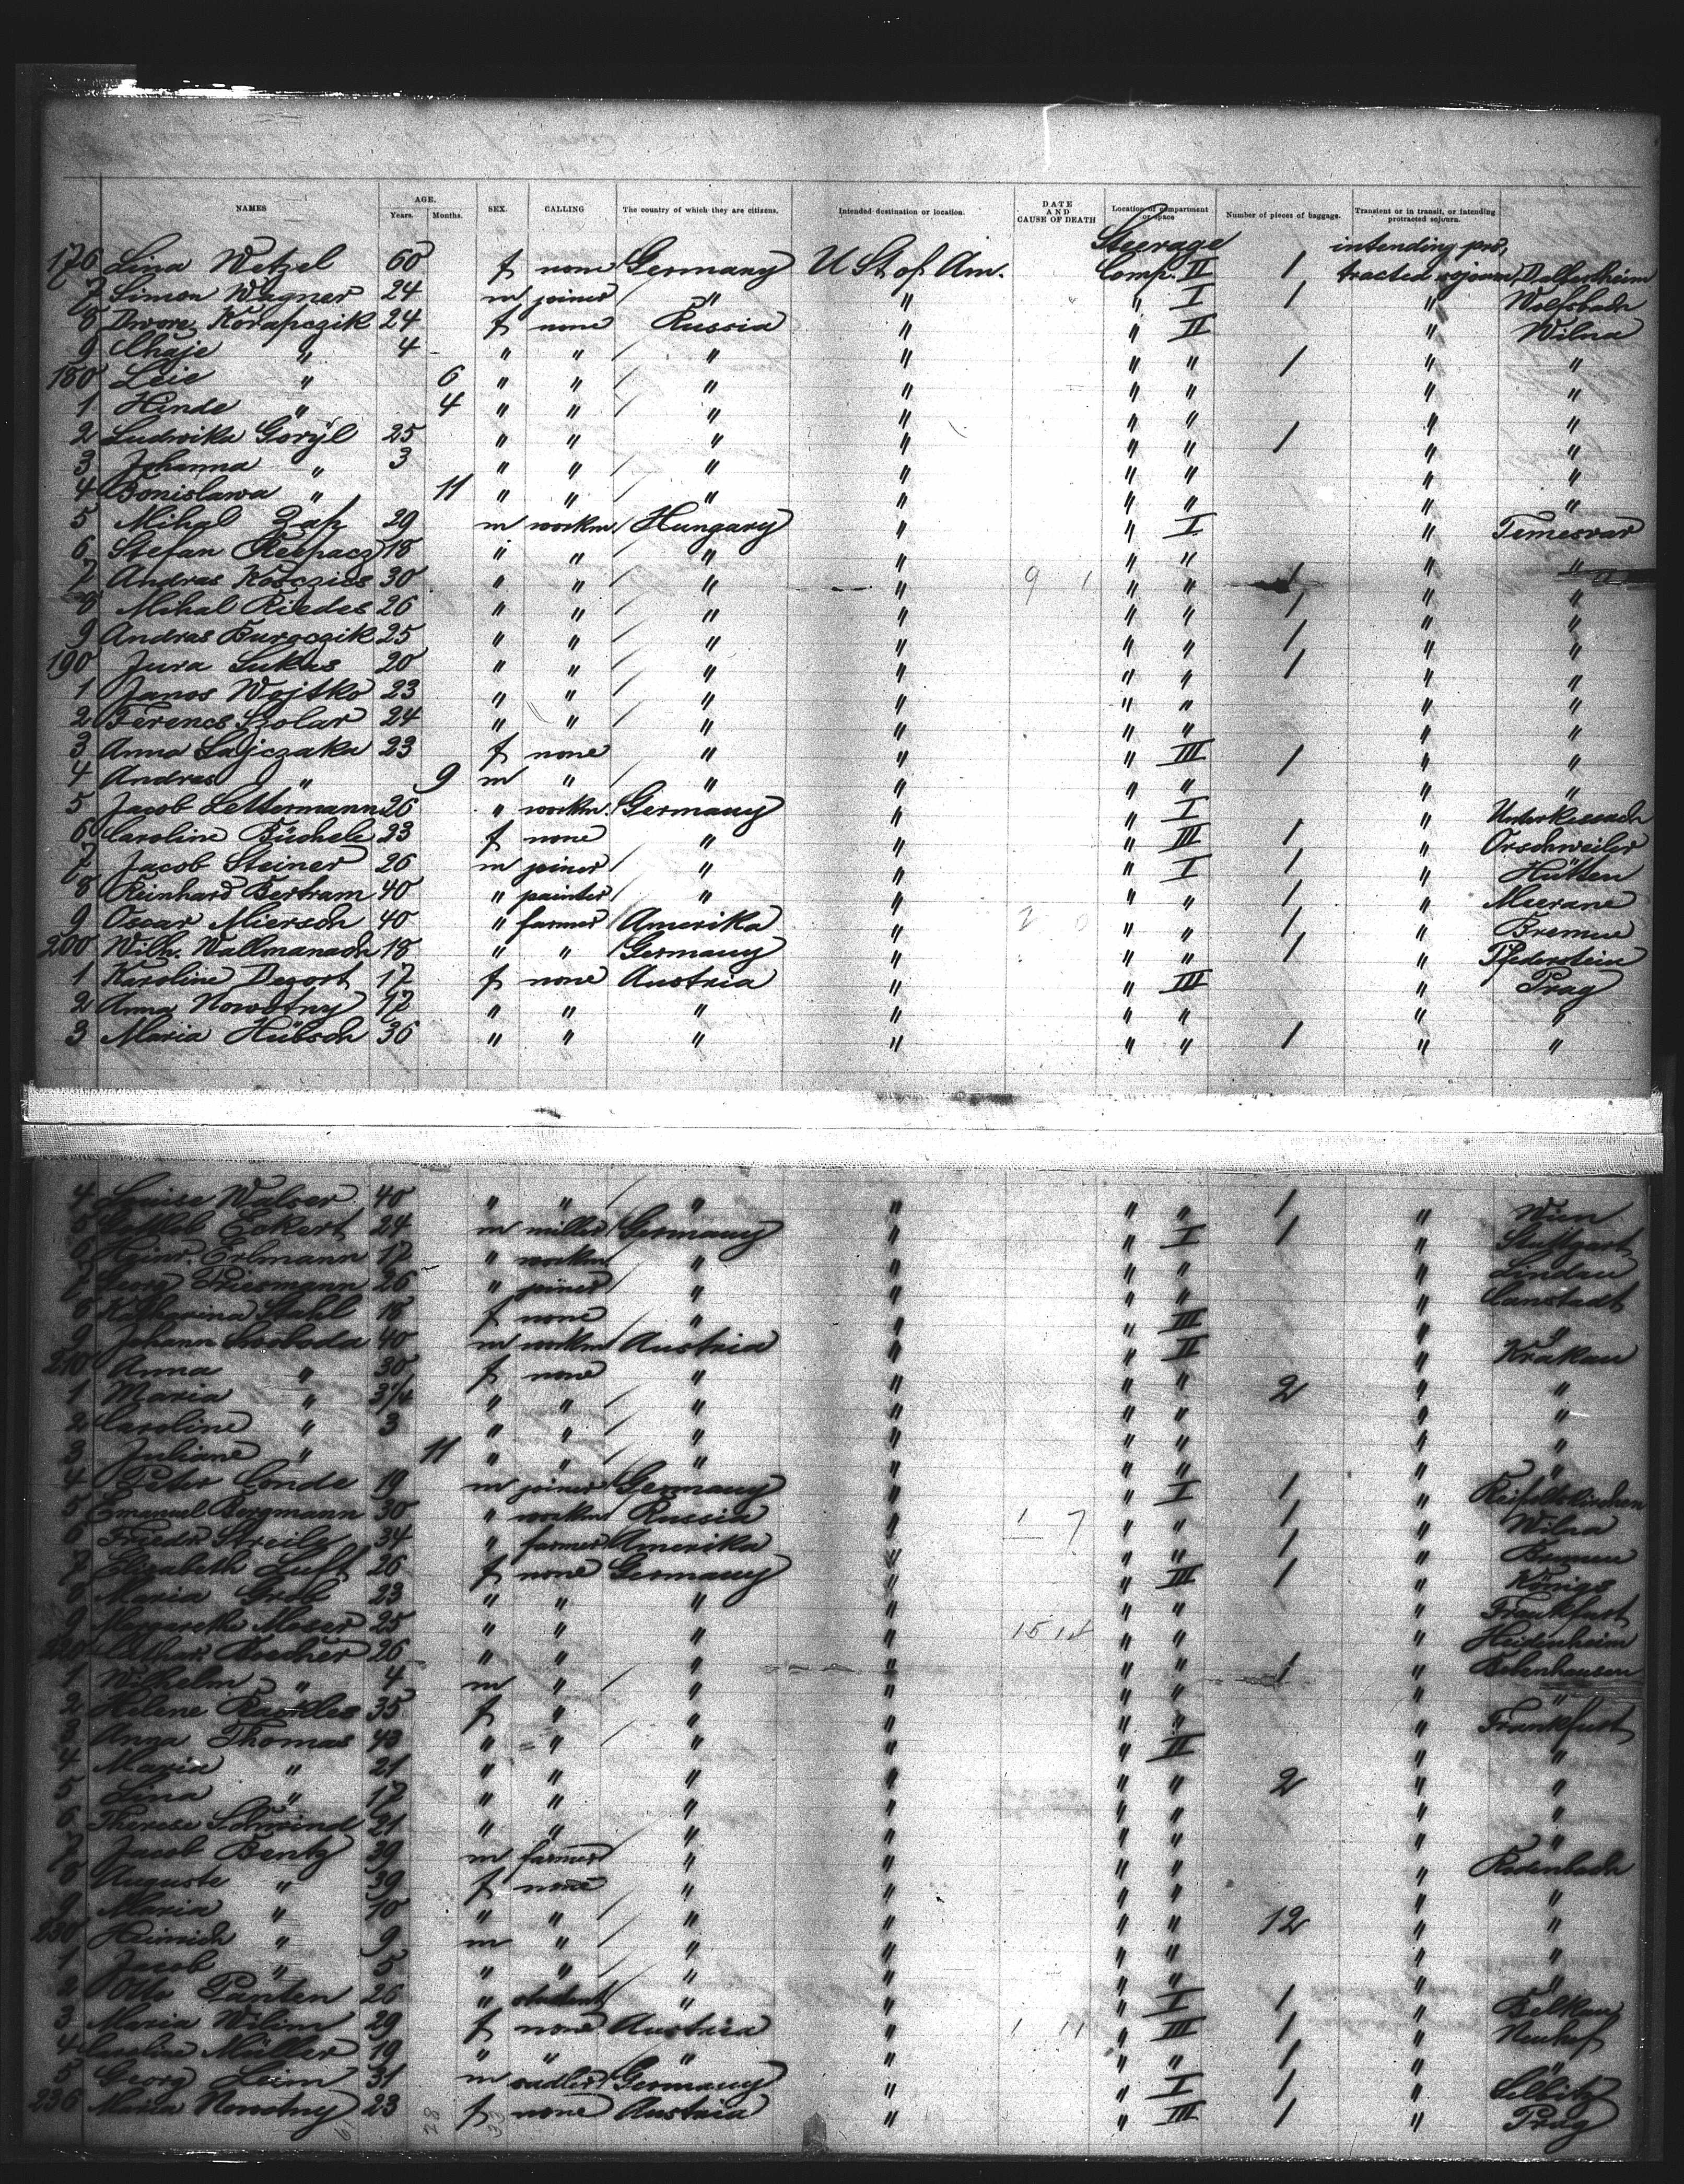 NAMES AGE. Years. Months. SEX. CALLING The country of which they are citizens. Intended destination or location. DATE AND CAUSE OF DEATH Location of compartment or space Number of pieces of baggage. Transient or in transit, or intending protracted sojourn.
Steerage intending pro,
176 Lina Wetzel 60 f none Germany U St of Am. Comp. II 1 tracted sojourn Dalherheim
7 Simon Wagner 24 m joiner " " " I 1 " Wolfsbach
8 Dwore Korapczik 24 f none Russia " " II " Wilna
9 Chaje " 4 " " " " " " 1 " "
180 Leie " 6 " " " " " " " "
1 Hinde " 4 " " " " " " " "
2 Ludwika Goryl 25 " " " " " " 1 " "
3 Johanna " 3 " " " " " " " "
4 Bonislawa " 11 " " " " " " " "
5 Mihal Zap 29 m workm Hungary " " I " Temesvar
6 Stefan 18 " " " " " " " "
7 Andras Kosczics 30 " " " " 9 1 " " 1 " "
8 Mihal Riedes 26 " " " " " " 1 " "
9 Andras Burgczik 25 " " " " " " 1 " "
190 Jura Lukas 20 " " " " " " 1 " "
1 Janos Wojtko 23 " " " " " " " "
2 Ferencs Szolar 24 " " " " " " " "
3 Anna Lajczaka 23 f none " " " III 1 " "
4 Andras " 9 m " " " " " " "
5 Jacob Lettermann 26 " workm. Germany " " I " Unterkessach
6 Caroline Büchele 23 f none " " " III 1 " Orschweiler
7 Jacob Steiner 26 m joiner " " " I 1 " Hütten
8 Reinhard Bertram 40 " painter " " " " 1 " Meerane
9 Oscar Miersch 40 " farmer Amerika " 2 0 " " 1 " Bremen
200 Wilh. Wallmanach 18 " " Germany " " " 1 " Pfederstein
1 Karoline Degort 17 f none Austria " " III " Prag
2 Anna Nowotny 17 " " " " " " " "
3 Maria Hübsch 36 " " " " " " 1 " "
4 Louise Walser 40 " " " " " " 1 " Wien
5 Gottlob Eckert 24 m miller Germany " " I 1 " Stuttgart
6 Erlmann 17 " workm " " " " " Lindau
7 Georg Friesmann 26 " joiner " " " " " Canstadt
8 Katharina Stahl 18 f none " " " III " "
9 Johann Swoboda 40 m workm Austria " " II " Krakau
210 Anna " 30 f none " " " " 2 " "
1 Maria " 3¼ " " " " " " " "
2 Caroline " 3 " " " " " " " "
3 Juliane " 11 " " " " " " " "
4 Peter Conde 19 m joiner Germany " " I 1 " Reifeltskirchen
5 Emanuel Bergmann 30 " workm Russia " 1 7 " " 1 " Wilna
6 Friedr Streile 34 " farmer Amerika " " " 1 " Bremen
7 Elisabeth Luft 26 f none Germany " " III 1 " Königs
8 Maria Grob 23 " " " " " " " Frankfurt
9 Margarethe Moser 25 " " " " 15 12 " " " Heidenheim
220 Kathar. Roecher 26 " " " " " " 1 " Bebenhausen
1 Wilhelm " 4 m " " " " " " "
2 Helene 35 f " " " " " " Frankfurt
3 Anna Thomas 43 " " " " " II " "
4 Maria " 21 " " " " " " 2 " "
5 Lina " 17 " " " " " " " "
6 Therese Schwind 21 " " " " " " " "
7 Jacob Bentz 39 m farmer " " " " " Rodenbach
8 Auguste " 39 f none " " " " " "
9 Maria " 10 " " " " " " 12 " "
230 Heinrich " 9 m " " " " " " "
1 Jacob " 5 " " " " " " " "
2 Otto Panten 26 " student " " " I 1 " Belkau
3 Maria Wilim 29 f none Austria " 1 11 " III 1 " Neuhof
4 Caroline Müller 19 " " " " " " 1 " "
5 Georg Leim 31 m sadler Germany " " I 1 " Selbitz
236 Maria Nowotny 23 f none Austria " " III 1 " Prag